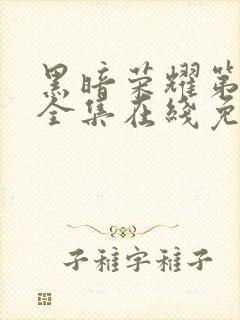 黑暗荣耀第
全集在线免
子稚字稚子